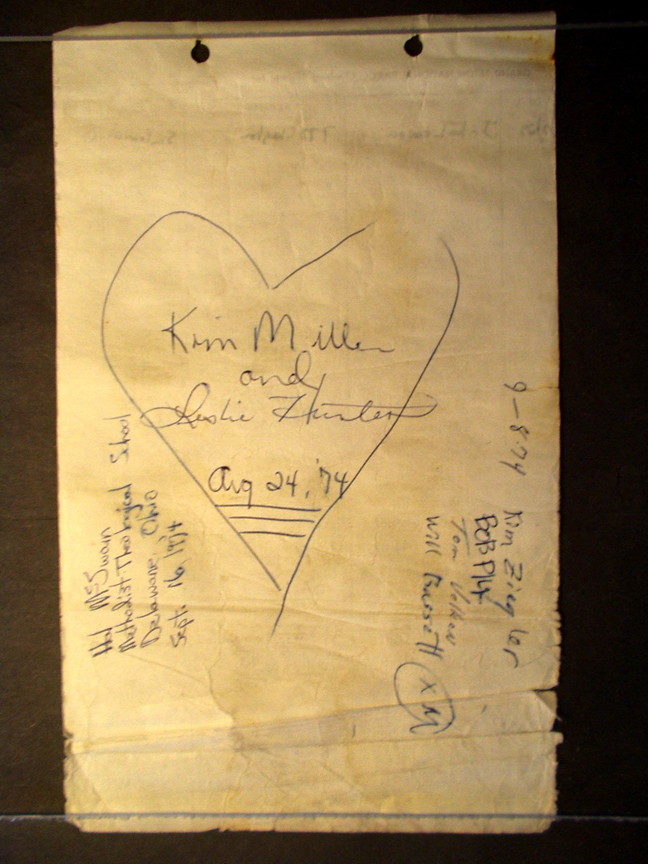 Kim Miller
and
Leslie Hunter
Aug 24, '74
Hal McSwain
Methodist Theological School
Delaware, Ohio
Sept. 16, 1974
9-8-74
Kim Zieg ler
BOB
Tom
Will
XM